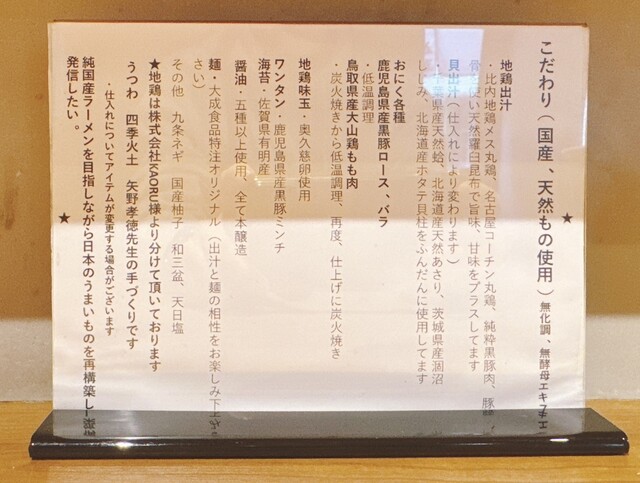 こだわり（国産、天然もの使用）無化調、無酵母エキス
★
地鶏出汁
・比内地鶏メス丸鶏、名古屋コーチン丸鶏、純粋黒豚肉、豚
骨を使い天然羅臼昆布で旨味、甘味をプラスしてます
貝出汁（仕入れにより変わります）
・千葉県産天然蛤、北海道産天然あさり、茨城県産涸沼
しじみ、北海道産ホタテ貝柱をふんだんに使用してます
おにく各種
鹿児島県産黒豚ロース、バラ
・低温調理
鳥取県産大山鶏もも肉
・炭火焼きから低温調理、再度、仕上げに炭火焼き
地鶏味玉・奥久慈卵使用
ワンタン・鹿児島県産黒豚ミンチ
海苔・佐賀県有明産
醤油・五種以上使用、全て本醸造
麺・大成食品特注オリジナル（出汁と麺の相性をお楽しみ下
さい）
その他　九条ネギ　国産柚子　和三盆、天日塩
★地鶏は株式会社KAORU様より分けて頂いております
うつわ　四季火土　矢野孝徳先生の手づくりです
・仕入れについてアイテムが変更する場合がございます
★
純国産ラーメンを目指しながら日本のうまいものを再構築し
発信したい。